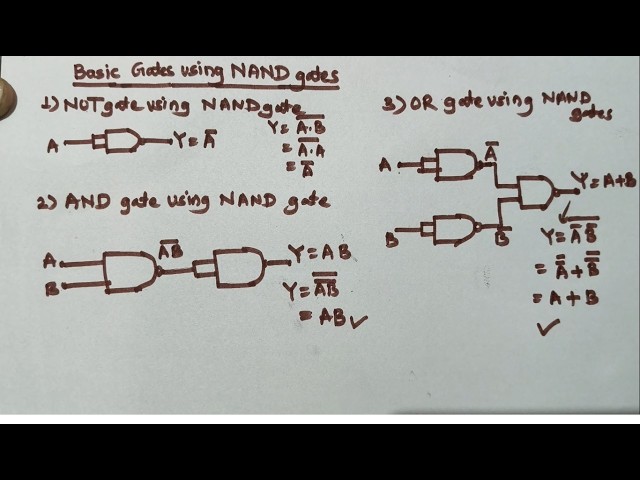 Basic Gates using NAND gates
1) NOT gate using NAND gate
A
Y = A̅
Y = \overline{A·B}
= \overline{A·A}
= A̅
2) AND gate using NAND gate
A
B
\overline{AB}
Y = AB
Y = \overline{\overline{AB}}
= AB ✓
3) OR gate using NAND
gates
A
A̅
B
B̅
Y = A+B
Y = \overline{A̅ B̅}
= \overline{A̅} + \overline{B̅}
= A + B
✓